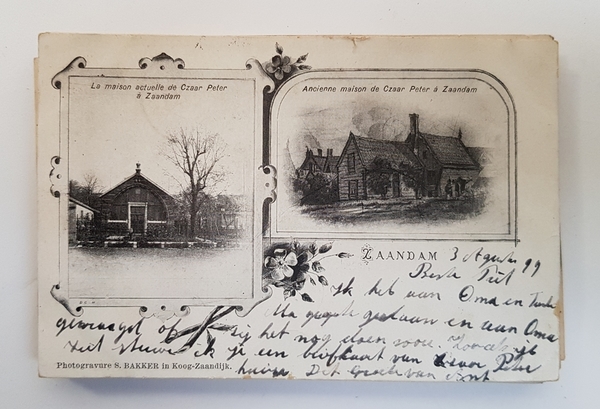 La maison actuelle de Czaar Peter
à Zaandam
Ancienne maison de Czaar Peter à Zaandam
ZAANDAM 3 99
Beste
Ik heb aan Oma en Tante
gedaan en aan Oma
gevraagd of zij het nog doen zou. Zooals je
ziet stuur ik je een briefkaart van Czaar Peter
Photogravure S. BAKKER in Koog-Zaandijk.
huisje. Dit van